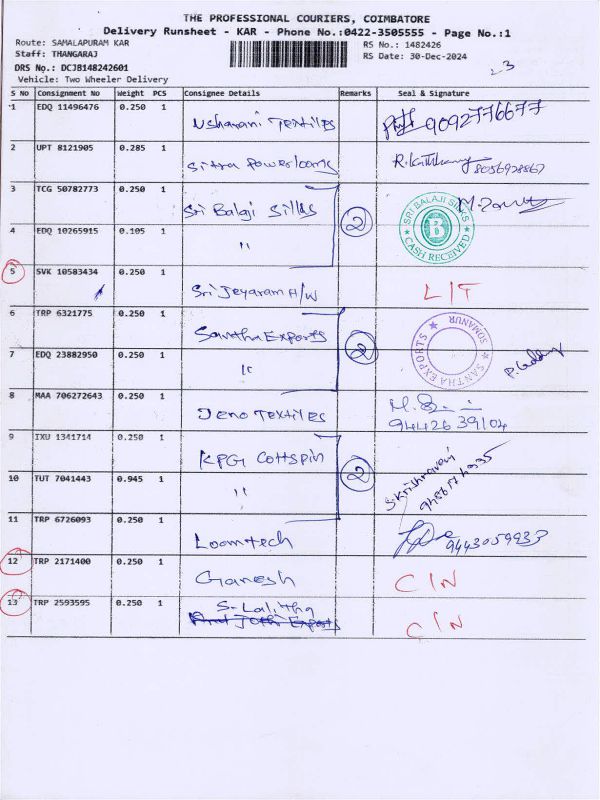 THE PROFESSIONAL COURIERS, COIMBATORE
Delivery Runsheet - KAR - Phone No.:0422-3505555 - Page No.:1
Route: SAMALAPURAM KAR RS No.: 1482426
Staff: THANGARAJ RS Date: 30-Dec-2024
DRS No.: DCJB148242601
Vehicle: Two Wheeler Delivery
23
S No Consignment No Weight PCS Consignee Details Remarks Seal & Signature
1 EDQ 11496476 0.250 1 Usharani Textiles 9092776677
2 UPT 8121905 0.285 1 Sitra Powerlooms 8056928867
3 TCG 50782773 0.250 1 Sri Balaji Silks 2 SRI BALAJI SILKS B CASH RECEIVED
4 EDQ 10265915 0.105 1 "
5 SVK 10583434 0.250 1 Sri Jeyaram H/W L/T
6 TRP 6321775 0.250 1 Santha Exports 2 SANTHA EXPORTS SOMANUR
7 EDQ 23882950 0.250 1 "
8 MAA 706272643 0.250 1 Jeno Textiles 9442639104
9 IXU 1341714 0.250 1 KPG Cottspin 2
10 TUT 7041443 0.945 1 "
11 TRP 6726093 0.250 1 Loomtech 9443059933
12 TRP 2171400 0.250 1 Ganesh C/N
13 TRP 2593595 0.250 1 S. Lalitha C/N